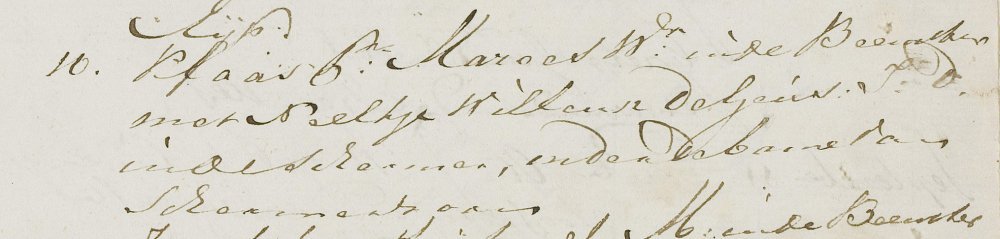 Rijp.
10. Klaas Pr. Marees Wr. in de Beemster
met Neeltje Willems de Geus. J. D.
in de Schermer, onder de banne van
Schermerhorn
M: in de Beemster